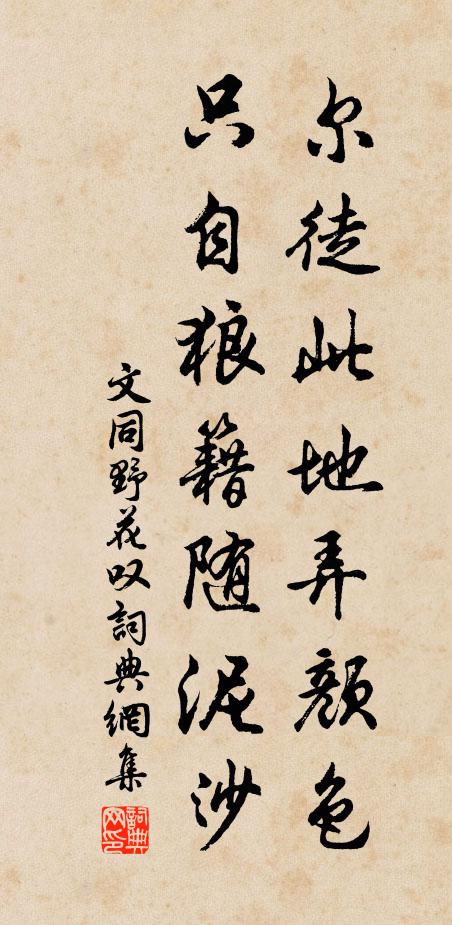 尔徒此地弄颜色
只自狼籍随泥沙
文同野花叹詞典網集
詞典网印